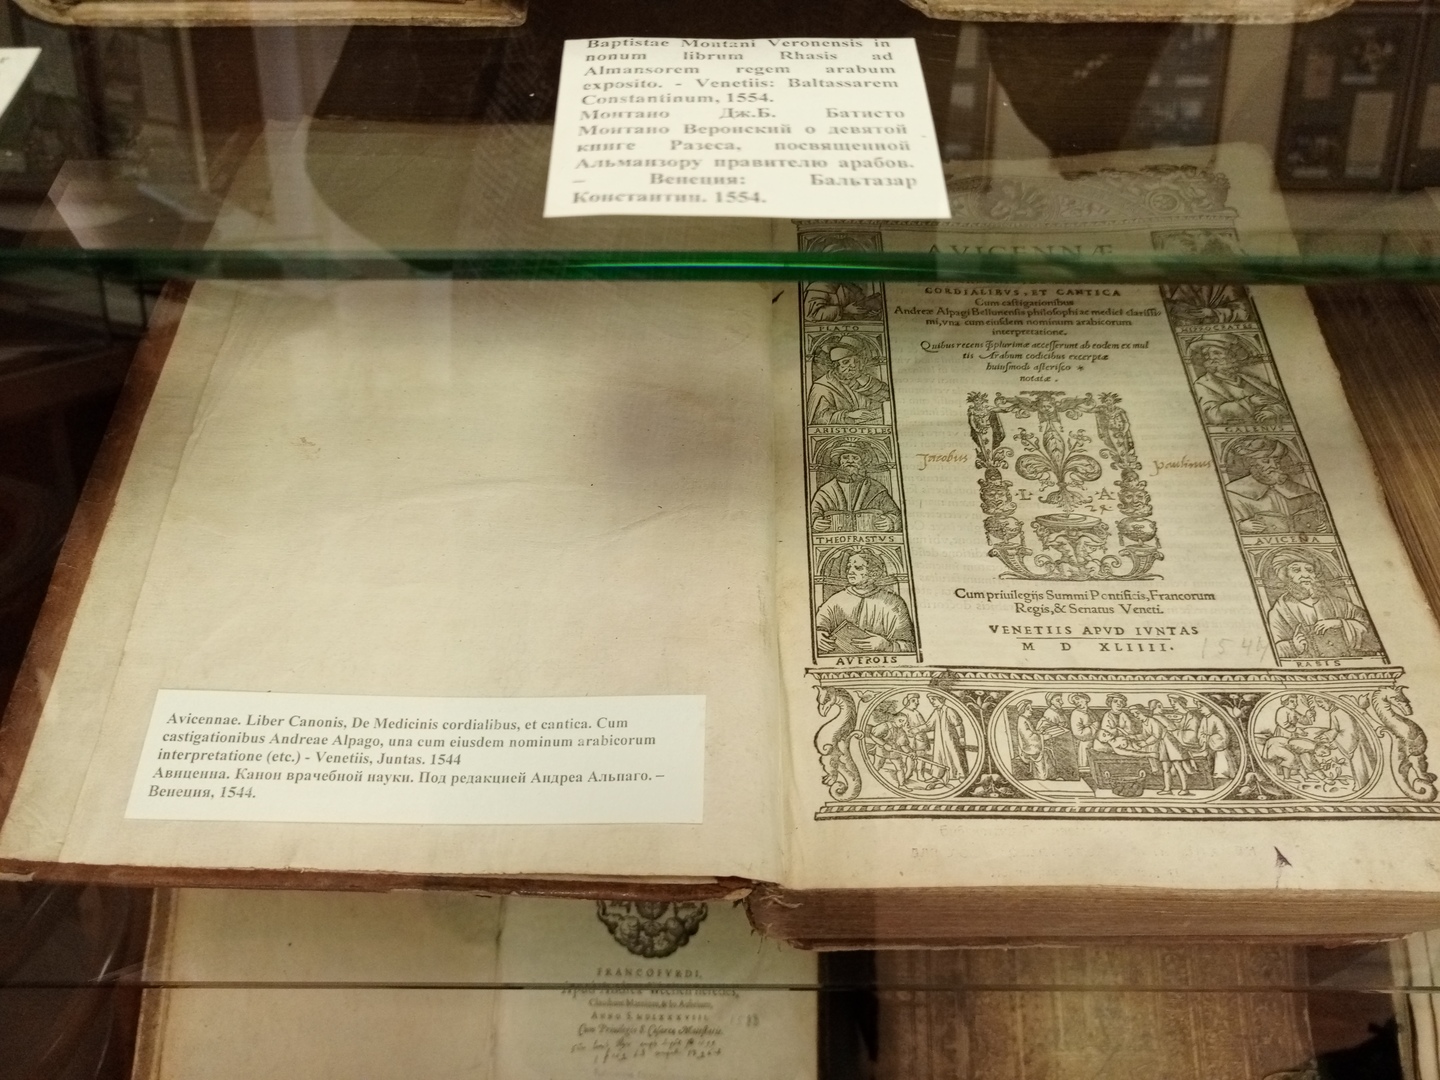 Baptistae Montani Veronensis in
nonum librum Rhasis ad
Almansorem regem arabum
exposito. - Venetiis: Baltassarem
Constantinum, 1554.
Монтано Дж.Б. Батисто
Монтано Веронский о девятой
книге Разеса, посвященной
Альманзору правителю арабов.
– Венеция: Бальтазар
Константин. 1554.
AVICENNÆ
CORDIALIBVS, ET CANTICA
Cum castigationibus
Andreæ Alpagi Bellunensis philosophi ac medici clarissi-
mi, vna cum eiusdem nominum arabicorum
interpretatione.
Quibus recens q̃plurimæ accesserunt ab eodem ex mul
tis Arabum codicibus excerptæ
huiusmodi asterisco *
notatæ .
PLATO
HIPPOCRATES
ARISTOTELES
GALENUS
Jacobus
Paulinus
L A
THEOFRASTVS
AVICENA
Cum priuilegijs Summi Pontificis, Francorum
Regis, & Senatus Veneti.
VENETIIS APVD IVNTAS
M D XLIIII.
1544
AVEROIS
RASIS
Avicennae. Liber Canonis, De Medicinis cordialibus, et cantica. Cum
castigationibus Andreae Alpago, una cum eiusdem nominum arabicorum
interpretatione (etc.) - Venetiis, Juntas. 1544
Авиценна. Канон врачебной науки. Под редакцией Андреа Альпаго. –
Венеция, 1544.
FRANCOFVRDI,